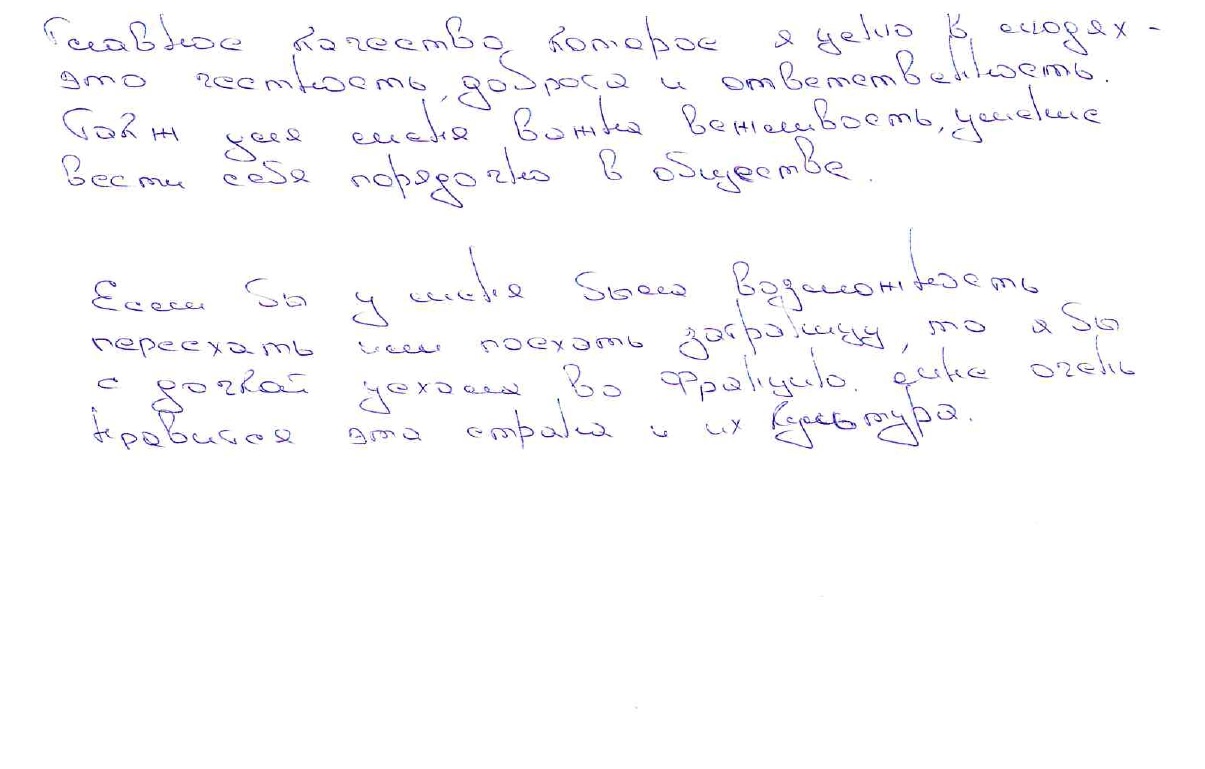 Главное качество, которое я ценю в людях -
это честность, доброта и ответственность.
Такж для меня важна вежливость, умение
вести себя порядочно в обществе.
Если бы у меня была возможность
переехать или поехать заграницу, то я бы
с дочкой уехала во Францию. Мне очень
нравится эта страна и их культура.